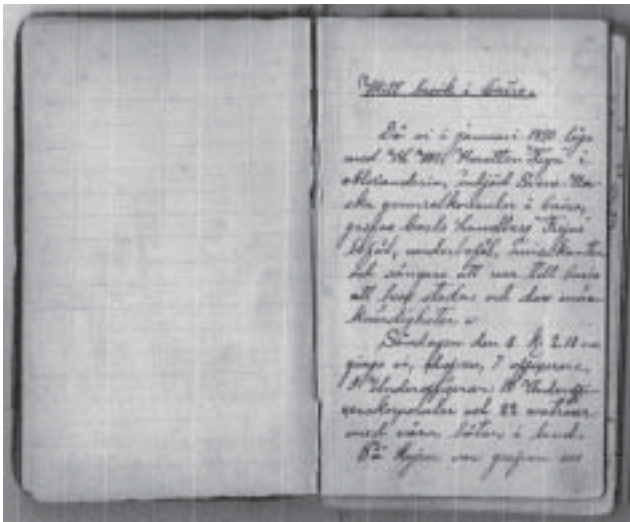 Mitt besök i Cairo.
Då vi i januari 1890 lågo
med H. M. Korvetten Freja i
Alexandria, inbjöd Svens-Nor-
ska generalkonsuln i Cairo,
grefve Carlo Landberg Frejas
befäl, underbefäl,
och sångare att resa till Cairo
att bese staden och dess märk-
värdigheter.
Söndagen den kl. 2.10 em
gingo vi, chefen, 7 officerare,
Underofficerar, 10 Underoffi-
cerskorpraler och 22 matroser
med våra båtar i land.
På kajen var grefven